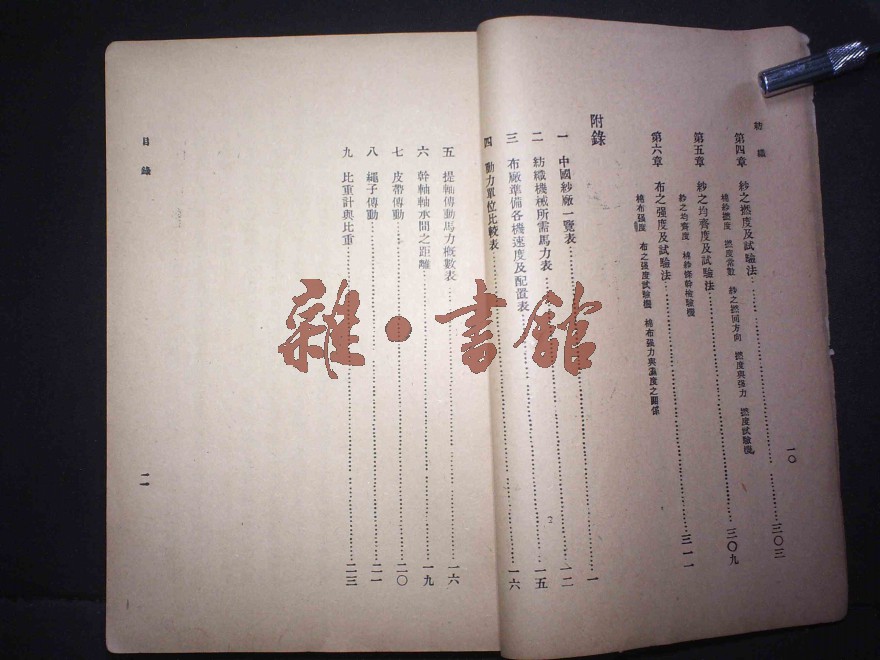 紡織
一〇
第四章 紗之撚度及試驗法……三〇三
棉紗撚度 撚度常數 紗之撚回方向 撚度與强力 撚度試驗機
第五章 紗之均齊度及試驗法……三〇九
紗之均齊度 棉紗條幹檢驗機
第六章 布之强度及試驗法……三一一
棉布强度 布之强度試驗機 棉布强力與濕度之關係
附錄
一 中國紗廠一覽表……一
二 紡織機械所需馬力表……一二
三 布廠準備各機速度及配置表……一五
四 動力單位比較表……一六
五 提軸傳動馬力概數表……一六
六 幹軸軸承間之距離……一九
七 皮帶傳動……二〇
八 繩子傳動……二一
九 比重計與比重……二三
目錄
一一
雜·書館